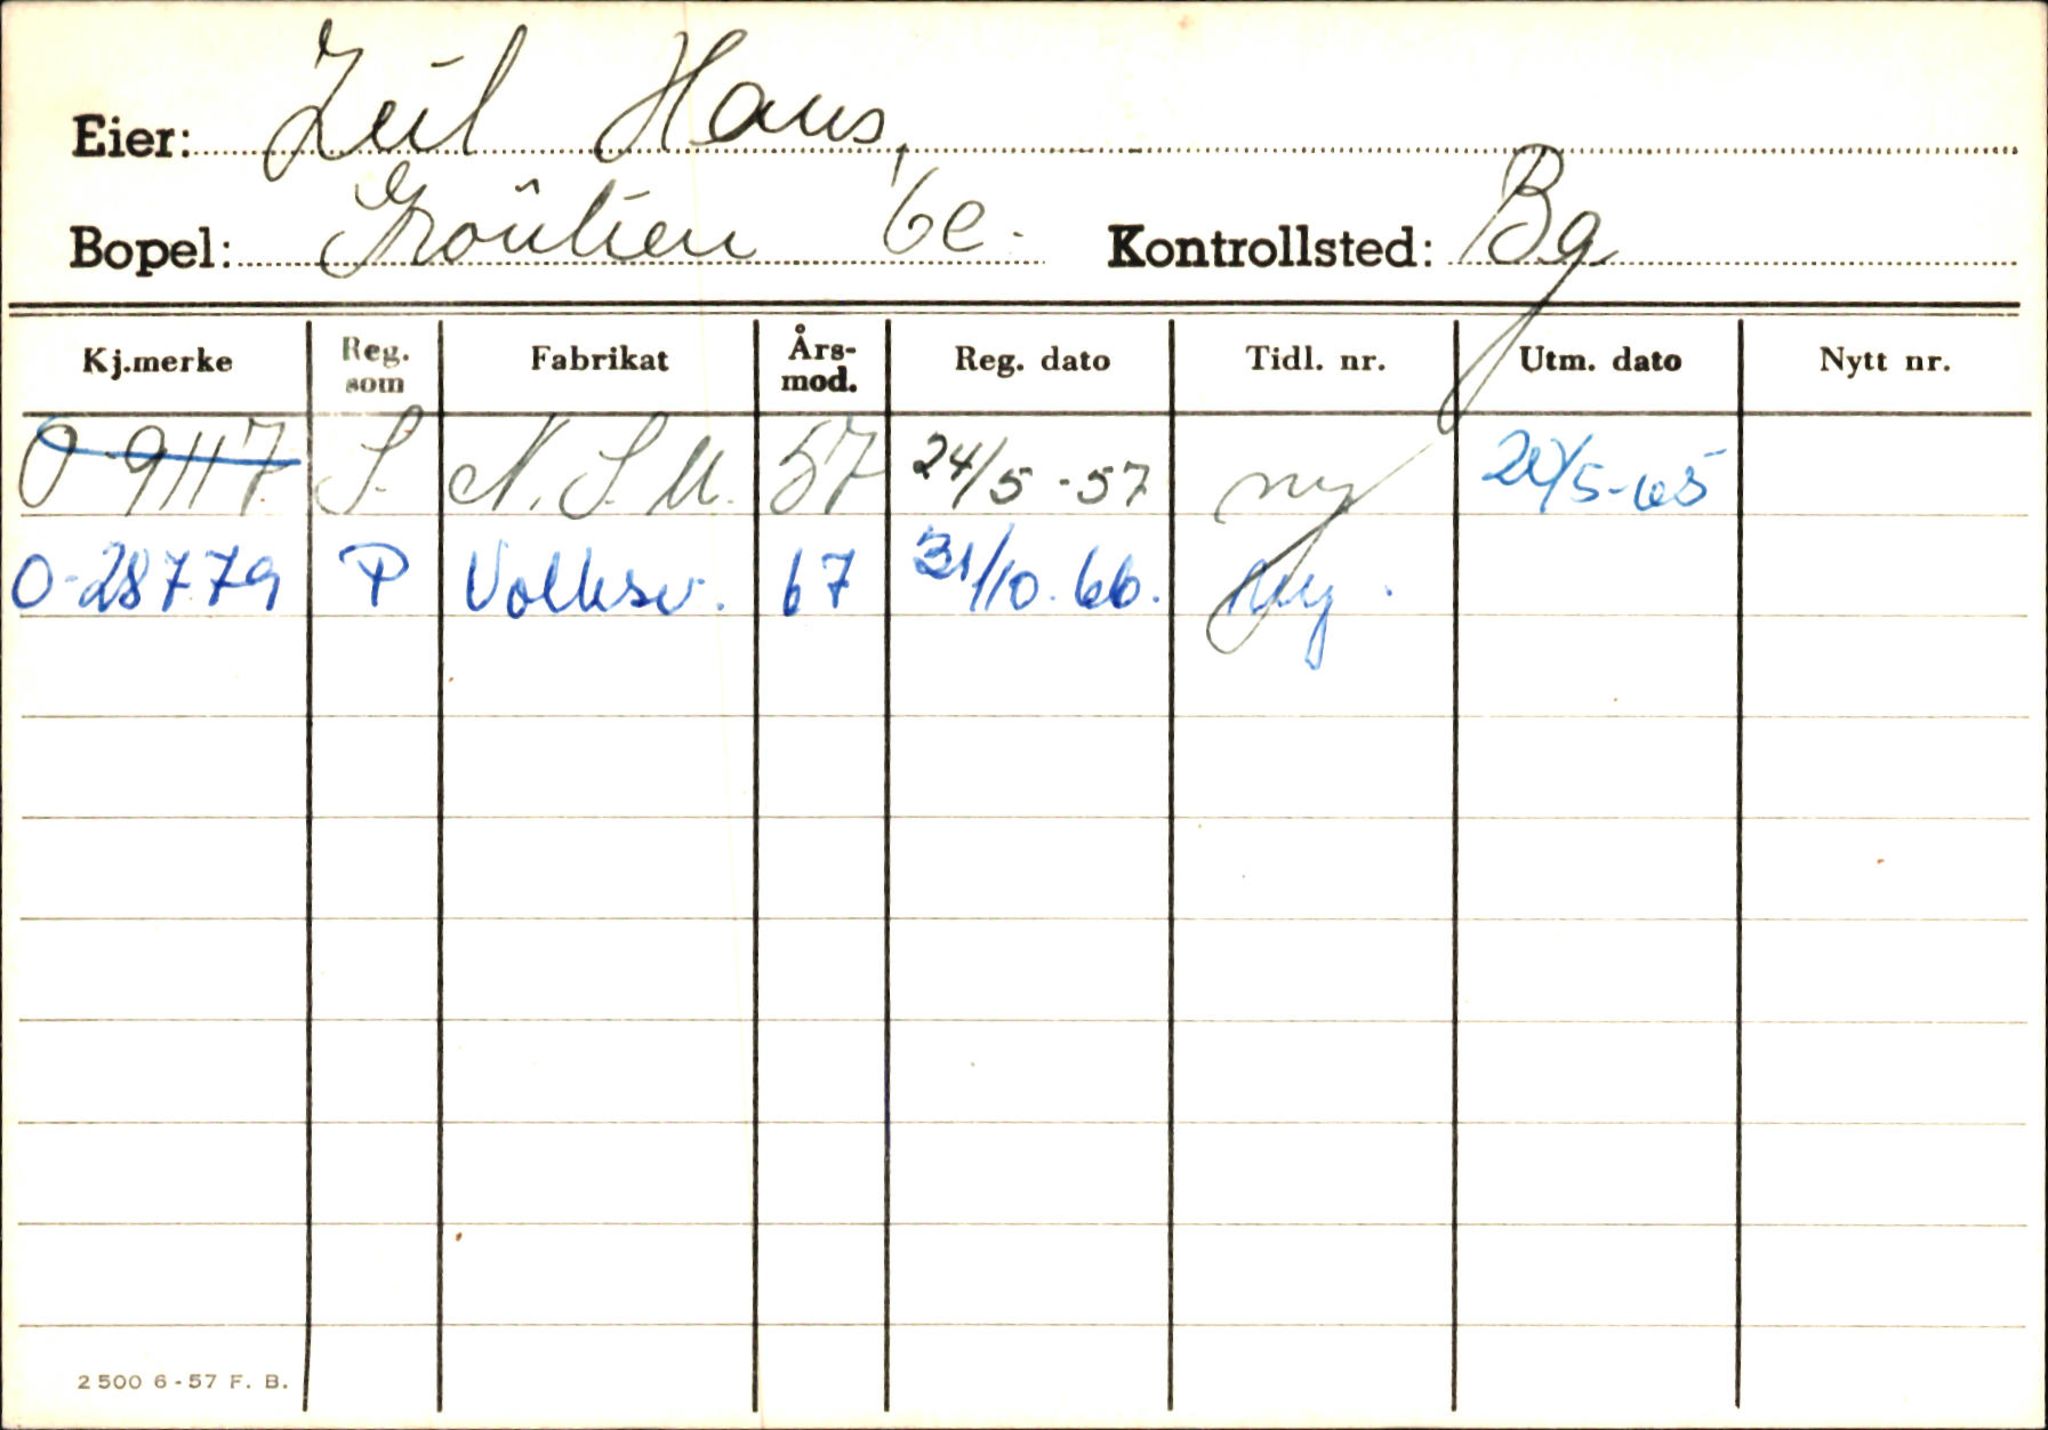 Eier: Zeil Hans,
Bopel: 6c. Kontrollsted: Bg
Kj.merke Reg. som Fabrikat Års-mod. Reg. dato Tidl. nr. Utm. dato Nytt nr.
O-9117 S. N.S.U. 57 24/5-57 ny /5-65
O-28779 P Volksv. 67 31/10.66. Ny.
2500 6-57 F. B.